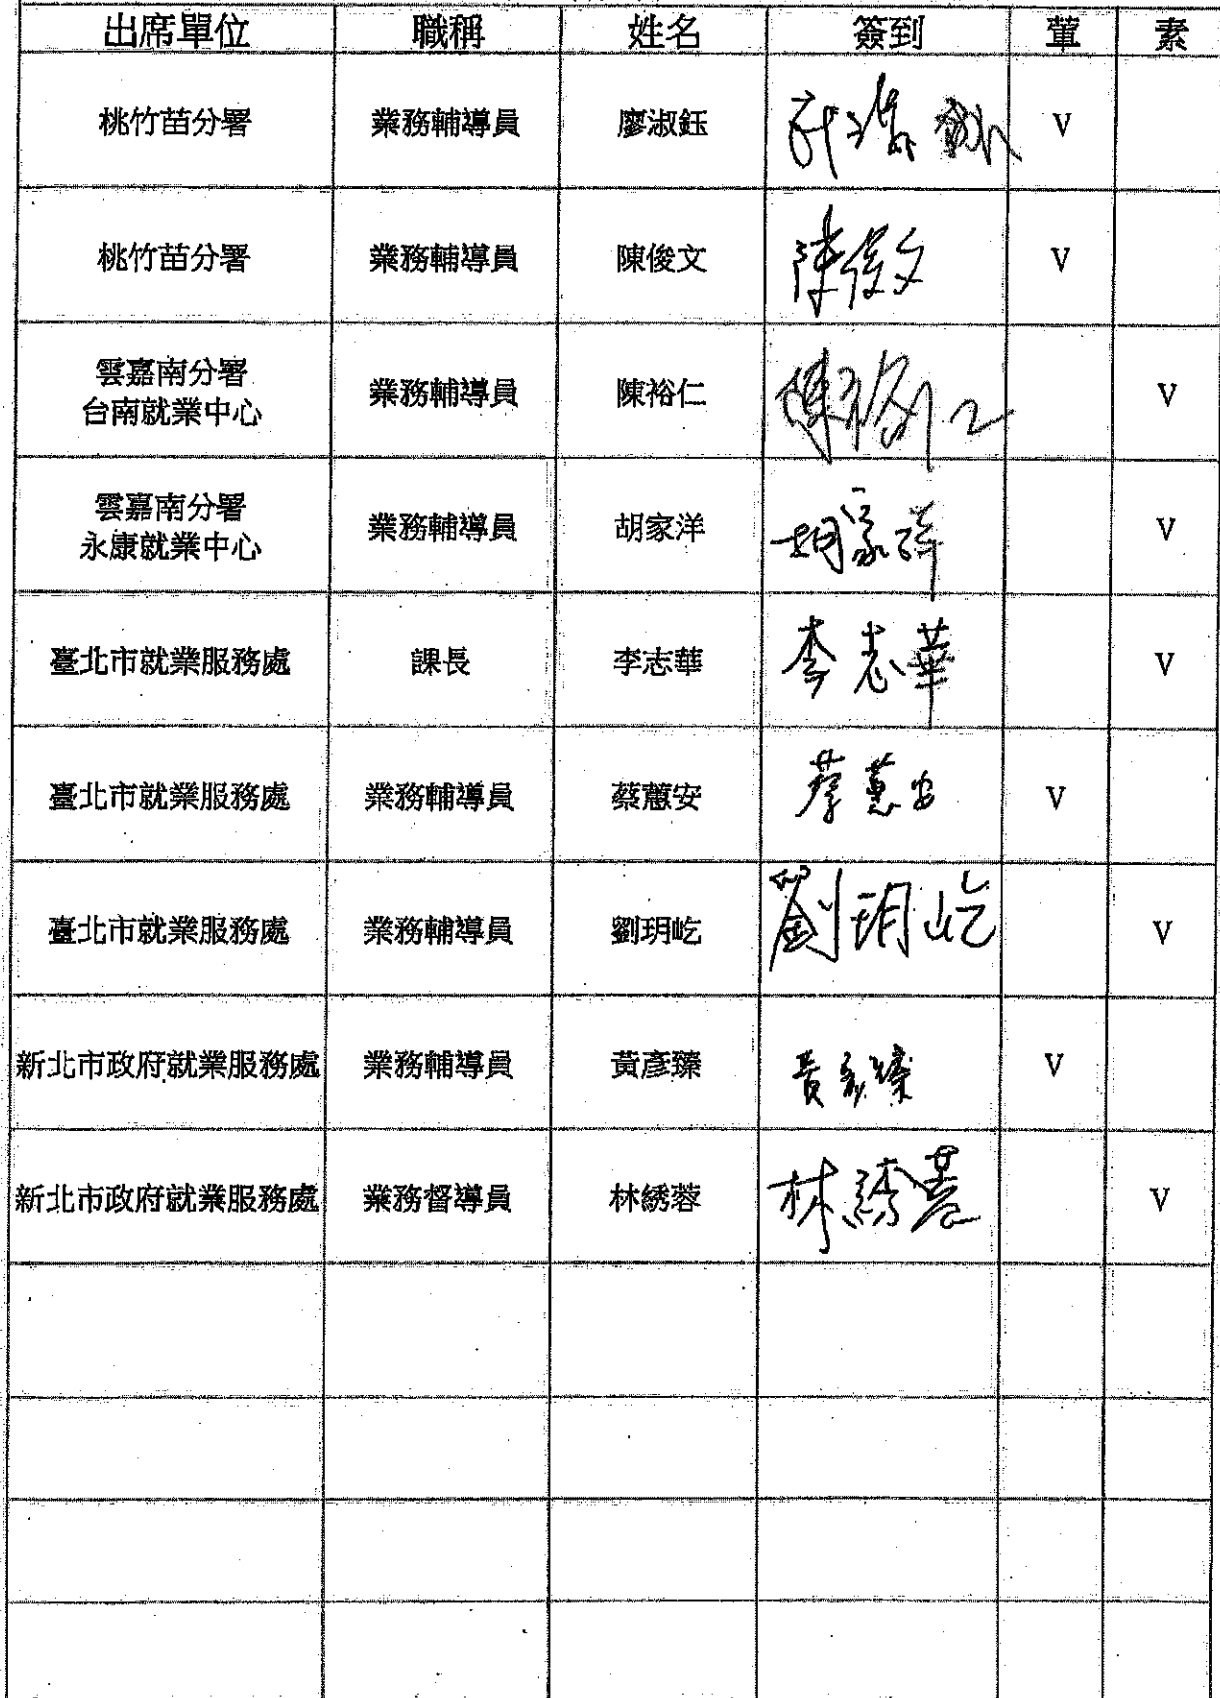 出席單位 職稱 姓名 簽到 葷 素
桃竹苗分署 業務輔導員 廖淑鈺 廖淑鈺 V
桃竹苗分署 業務輔導員 陳俊文 陳俊文 V
雲嘉南分署
台南就業中心 業務輔導員 陳裕仁 陳裕仁 V
雲嘉南分署
永康就業中心 業務輔導員 胡家洋 胡家洋 V
臺北市就業服務處 課長 李志華 李志華 V
臺北市就業服務處 業務輔導員 蔡蕙安 蔡蕙安 V
臺北市就業服務處 業務輔導員 劉玥屹 劉玥屹 V
新北市政府就業服務處 業務輔導員 黃彥臻 黃彥臻 V
新北市政府就業服務處 業務督導員 林綉蓉 林綉蓉 V